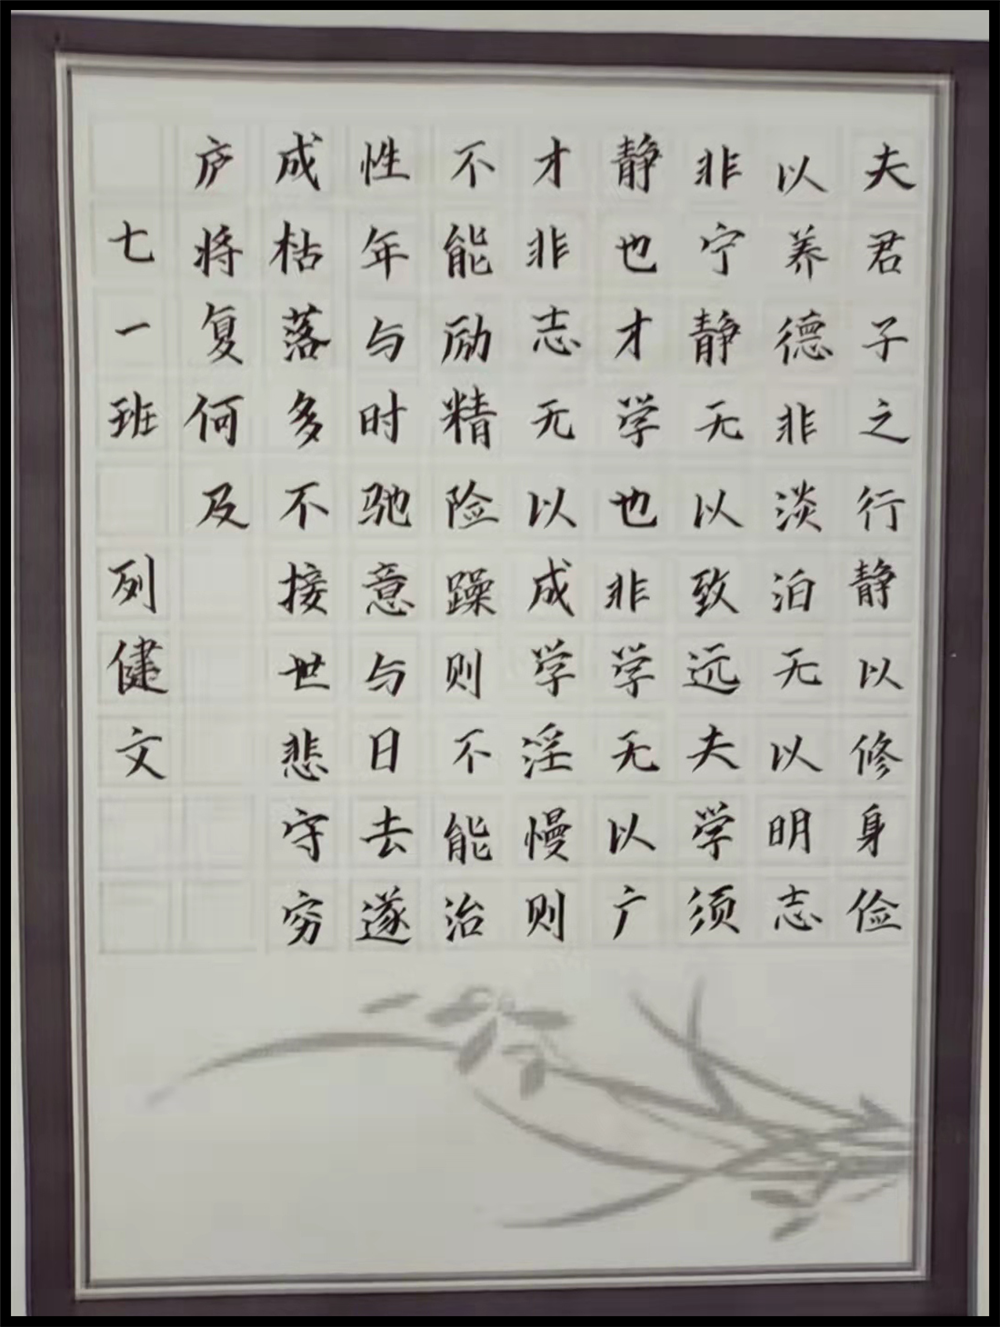 夫君子之行静以修身俭
以养德非淡泊无以明志
非宁静无以致远夫学须
静也才学也非学无以广
才非志无以成学淫慢则
不能励精险躁则不能治
性年与时驰意与日去遂
成枯落多不接世悲守穷
庐将复何及
七一班 列健文